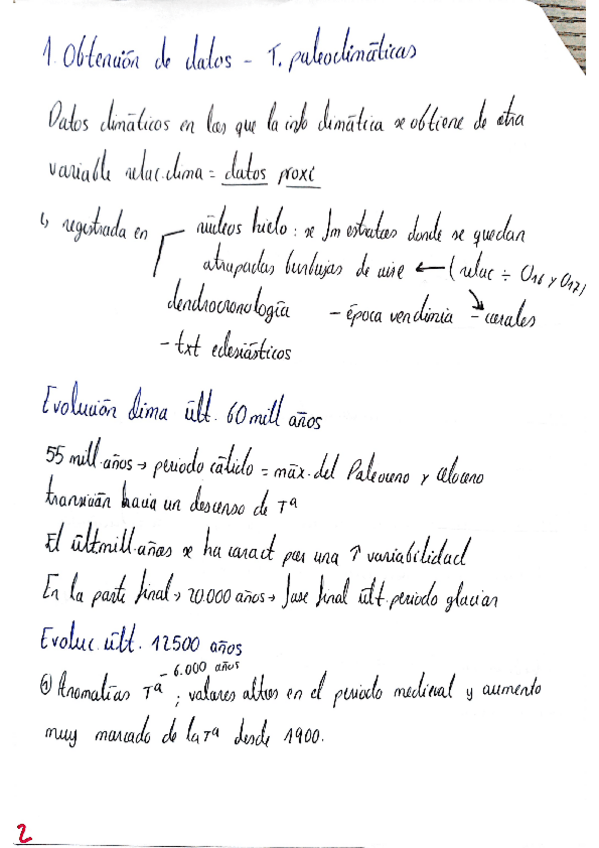 1. Obtención de datos - T. paleoclimáticas
Datos climáticos en los que la info climática se obtiene de otra
variable relac. clima = datos proxi
↳ registrada en núcleos hielo: se fm estratos donde se quedan
atrapadas burbujas de aire ← (relac ÷ O16 y O17)
dendrocronología - época vendimia - corales
- txt eclesiásticos
Evolución clima últ. 60 mill años
55 mill. años → periodo cálido = máx. del Paleoceno y Eoceno
transición hacia un descenso de Tª
El últ mill. años se ha caract por una ↑ variabilidad
En la parte final → 20.000 años → fase final últ. periodo glaciar
Evoluc. últ. 12500 años
- 6.000 años
① Anomalías Tª ; valores altos en el periodo medieval y aumento
muy marcado de la Tª desde 1900.
2